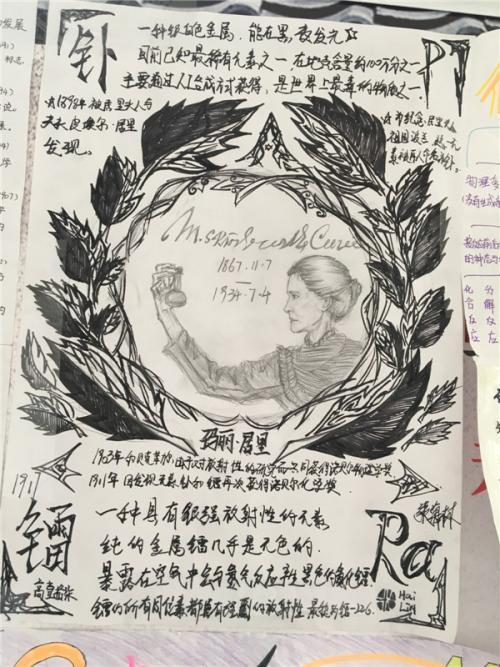 钋
一种银白色金属,能在黑夜发光
目前已知最稀有元素之一 在地壳含量约100万分之一
主要通过人工合成方式获得,是世界上最毒的物质之一
1898年被居里夫人与
丈夫皮埃尔·居里
发现。
为纪念居里夫人
祖国波兰
Curie
1867.11.7
1934.7.4
玛丽·居里
1903年和贝克勒尔由于对放射性的研究而共同获得诺贝尔物理学奖
1911年因发现元素钋和镭再次获得诺贝尔化学奖
镭
一种具有很强放射性的元素
纯的金属镭几乎是无色的.
暴露在空气中会与氮气反应产生黑色氮化镭
镭的所有同位素都具有强烈的放射性 最稳为镭-226.
Ra
Hai
Lin
发展
化 分
合 解
反 反
应 应